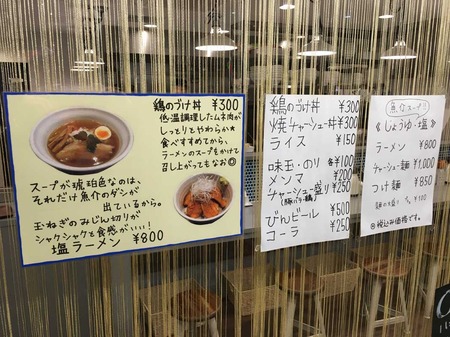 鶏のづけ丼 ¥300
低温調理したムネ肉が
しっとりやわらか★
食べすすめてから、
ラーメンのスープをかけて
召し上がってもなお◎
スープが琥珀色なのは、
それだけ魚介のダシが
出ているから。
玉ねぎのみじん切りが
シャクシャクと食感がいい!
塩ラーメン ¥800
鶏のづけ丼 ¥300
焼チャーシュー丼 ¥300
ライス ¥150
味玉・のり 各¥100
メンマ ¥200
チャーシュー盛り ¥250
(豚バラ・鶏)
びんビール ¥500
コーラ ¥250
魚介スープ
《しょうゆ・塩》
ラーメン ¥800
チャーシュー麺 ¥1000
つけ麺 ¥850
¥100
税込み価格です。